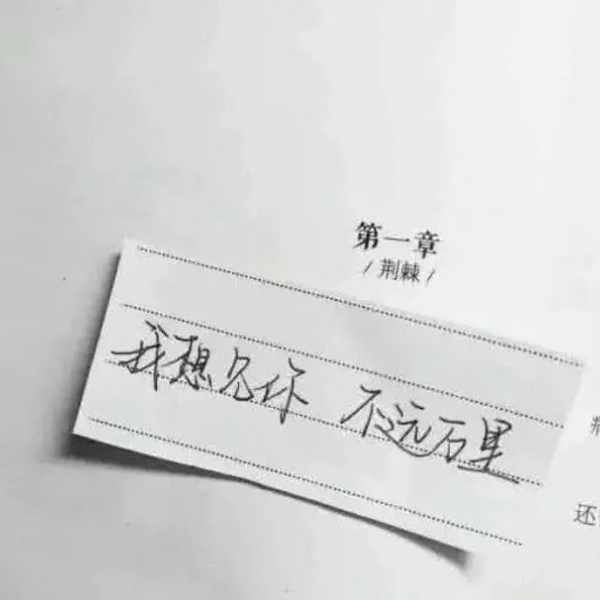 第一章
/荆棘/
我想见你 不远万里
还